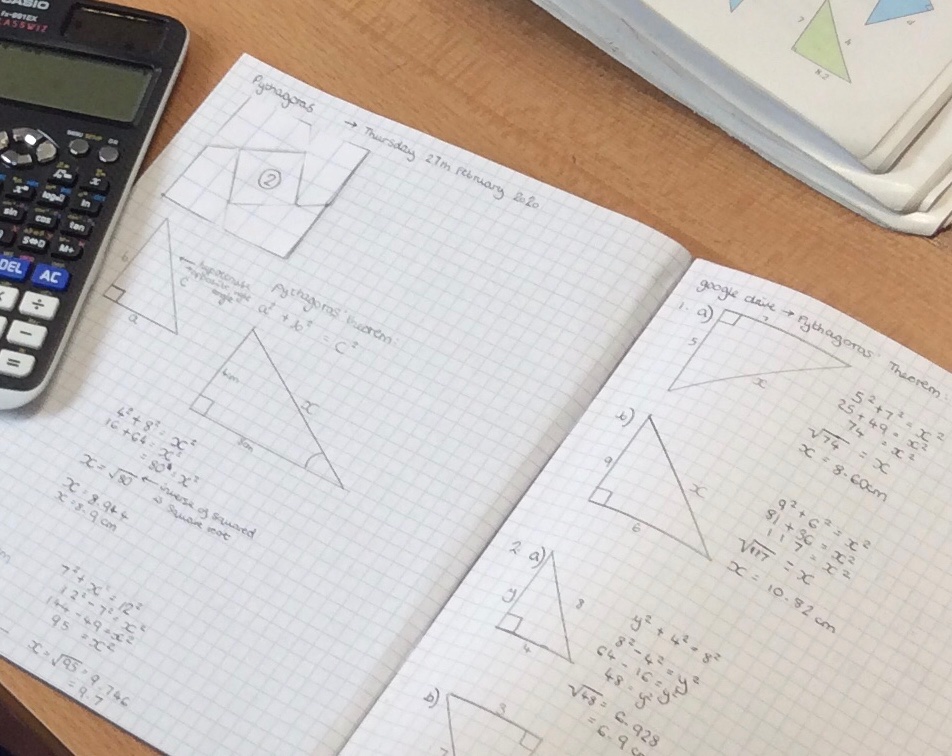 CASIO
fx-991EX
CLASSWIZ
MENU SETUP
ON
x
log
ln
sin
cos
tan
S⇔D
M+
DEL
AC
÷
−
=
7
6
8.2
Pythagoras
→ Thursday 27th February 2020
②
b
a
c
← hypotenuse
opposite right
angle
Pythagoras' theorem:
a² + b²
= c²
4cm
8cm
x
4² + 8² = x²
16 + 64 = x²
= 80 = x²
x = √80 ← inverse of squared
is square root
x = 8.944
x = 8.9 cm
7² + x² = 12²
12² - 7² = x²
144 - 49 = x²
95 = x²
x = √95 = 9.746
= 9.7
google drive → Pythagoras' Theorem
1. a)
5
7
x
5² + 7² = x²
25 + 49 = x²
74 = x²
√74 = x
x = 8.60cm
b)
9
6
x
9² + 6² = x²
81 + 36 = x²
117 = x²
√117 = x
x = 10.82 cm
2. a)
y
8
4
y² + 4² = 8²
8² - 4² = y²
64 - 16 = y²
48 = y²
√48 = 6.928
= 6.9 cm
b)
3
7